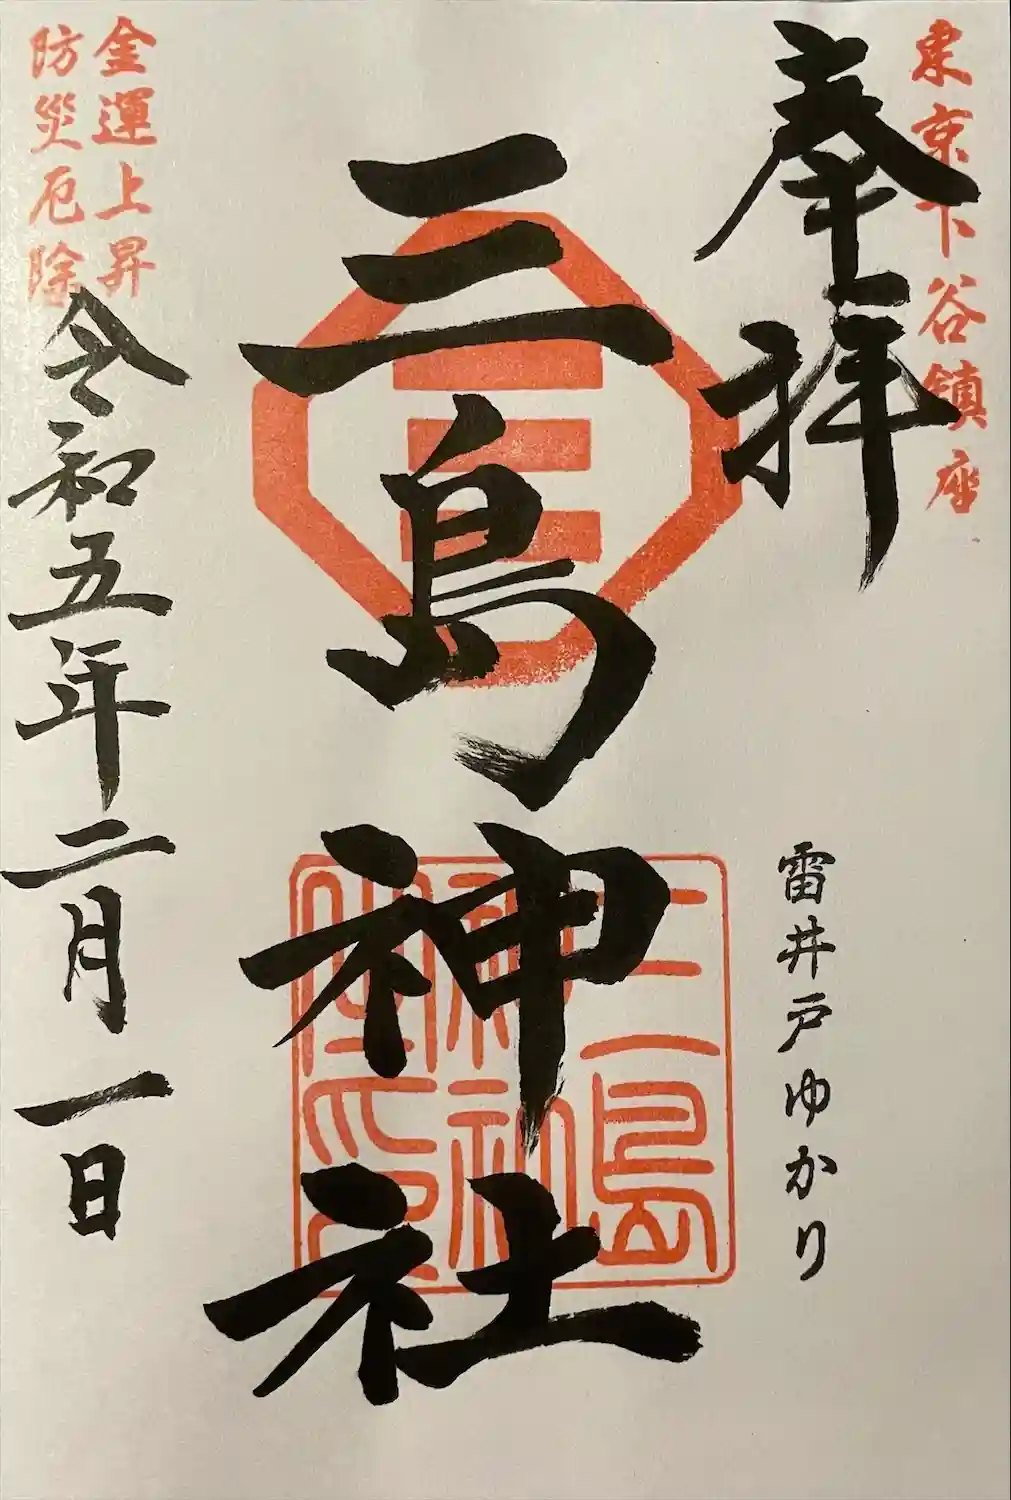 東京下谷鎮座
奉拝
雷井戸ゆかり
三島神社
三島
神社
之印
金運上昇
防災厄除
令和五年二月一日